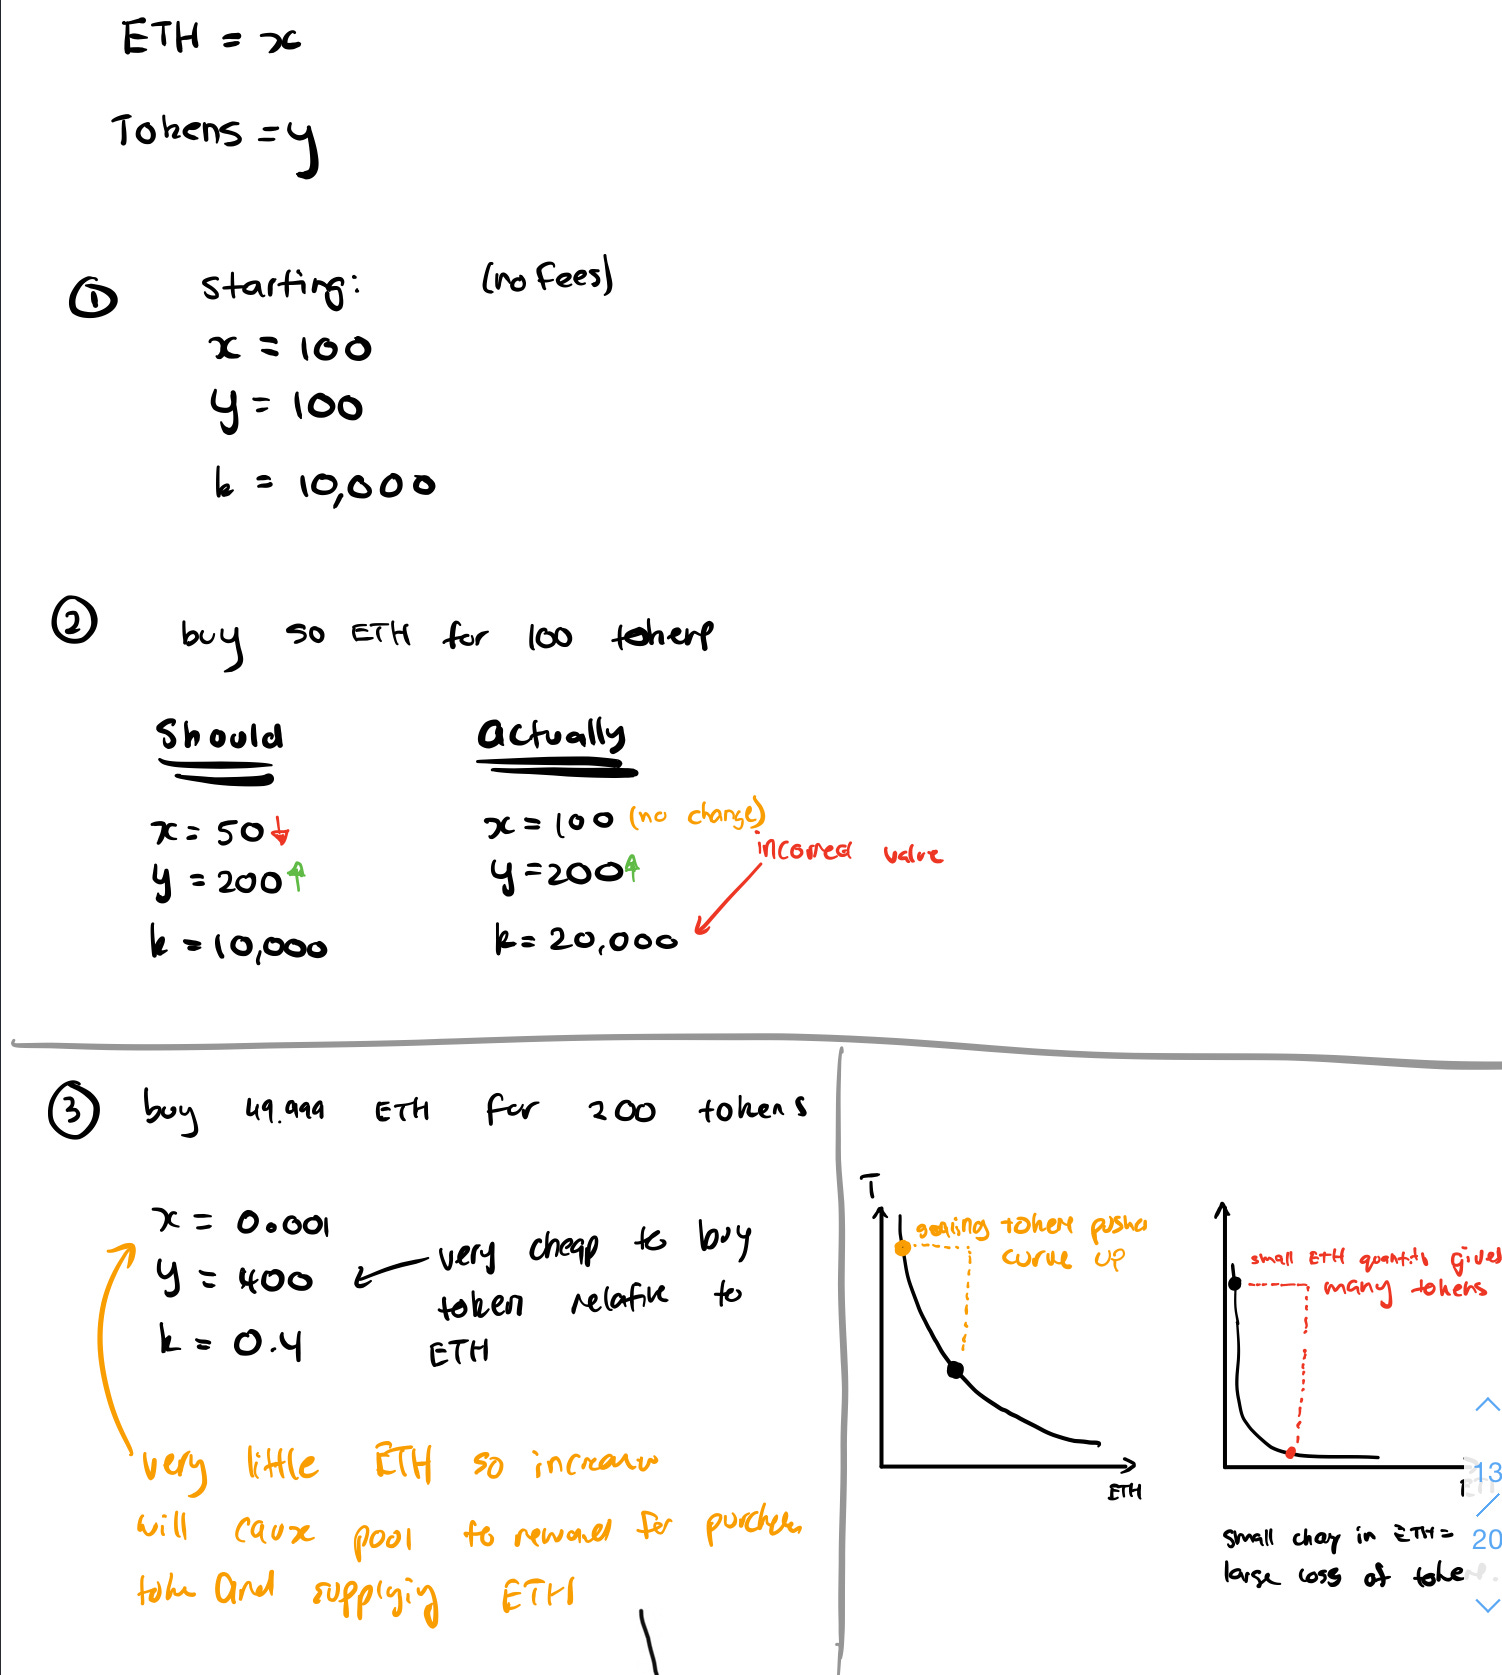 ETH = x
Tokens = y
① starting: (no fees)
x = 100
y = 100
k = 10,000
② buy 50 ETH for 100 tokens
Should
x = 50 ↓
y = 200 ↑
k = 10,000
Actually
x = 100 (no change)
y = 200 ↑
k = 20,000
incorrect value
③ buy 49.999 ETH for 200 tokens
x = 0.001
y = 400
k = 0.4
very cheap to buy
token relative to
ETH
very little ETH so increase
will cause pool to reward for purchase
toke and supplying ETH
T
token pushes
curve up
ETH
small ETH quantity gives
many tokens
small chang in ETH =
large loss of toke
13
/
20